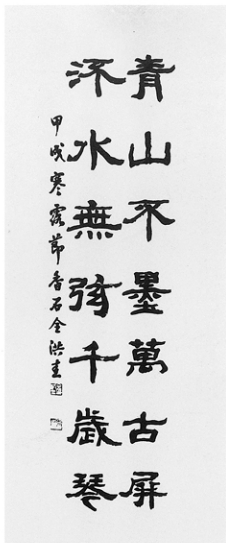 青山不墨萬古屏
流水無弦千歲琴
甲戌寒露節香石金洪圭